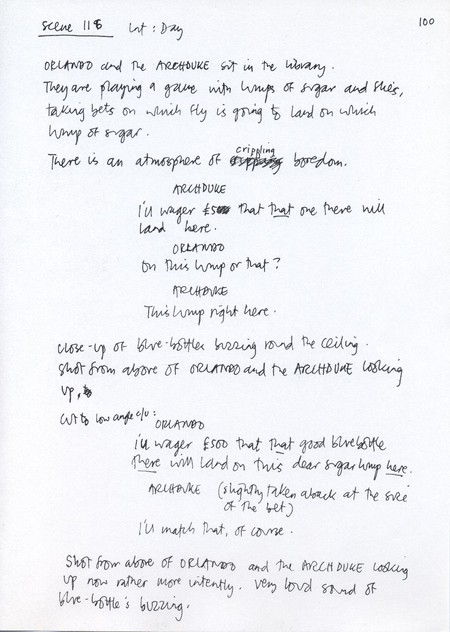 100
Scene 118 Int: Day
ORLANDO and the ARCHDUKE sit in the library.
They are playing a game with lumps of sugar and flies,
taking bets on which fly is going to land on which
lump of sugar.
There is an atmosphere of crippling boredom.
ARCHDUKE
I'll wager that that one there will
land here.
ORLANDO
On this lump or that?
ARCHDUKE
This lump right here.
Close-up of blue-bottles buzzing round the ceiling.
Shot from above of ORLANDO and the ARCHDUKE looking
up.
Cut to low angle c/u:
ORLANDO
I'll wager £500 that that good bluebottle
there will land on this dear sugar lump here.
ARCHDUKE (slightly taken aback at the size
of the bet)
I'll match that, of course.
Shot from above of ORLANDO and the ARCHDUKE looking
up now rather more intently. Very loud sound of
blue-bottle's buzzing.